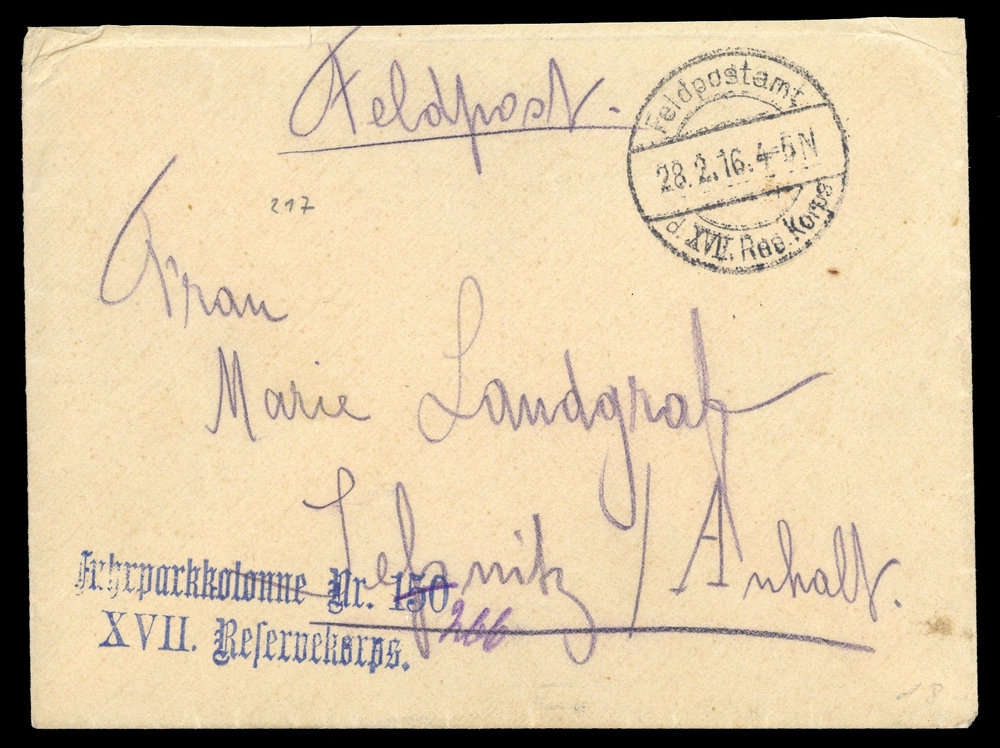 Feldpost.
Feldpostamt
28.2.16.4-5N
d. XVII. Res. Korps
217
Frau
Marie Landgraf
Jeßnitz / Anhalt.
Fuhrparkkolonne Nr. 150
266
XVII. Reservekorps.